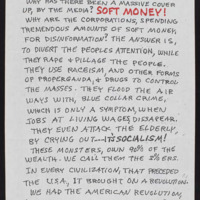 WHY HAS THERE BEEN A MASSIVE COVER
UP, BY THE MEDIA? SOFT MONEY!
WHY ARE THE CORPORATIONS, SPENDING
TREMENDOUS AMOUNTS OF SOFT MONEY,
FOR DISINFORMATION? THE ANSWER IS,
TO DIVERT THE PEOPLES ATTENTION, WHILE
THEY RAPE & PILLAGE THE PEOPLE.
THEY USE RACISM, AND OTHER FORMS
OF PROPERGAUDA, & DRUGS TO CONTROL
THE MASSES. THEY FLOOD THE AIR
WAYS WITH, BLUE COLLAR CRIME,
WHICH IS ONLY A SYMPTOM, WHEN
JOBS AT LIVING WAGES DISSAPEAR.
THEY EVEN ATTACK THE ELDERLY,
BY CRYING OUT—IT'S SOCIALISM!
THESE MONSTERS, OWN 90% OF THE
WEALTH. WE CALL THEM THE 2%ERS.
IN EVERY CIVILIZATION, THAT PRECEDED
THE USA, IT BROUGHT ON A REVOLUTION.
WE HAD THE AMERICAN REVOLUTION,